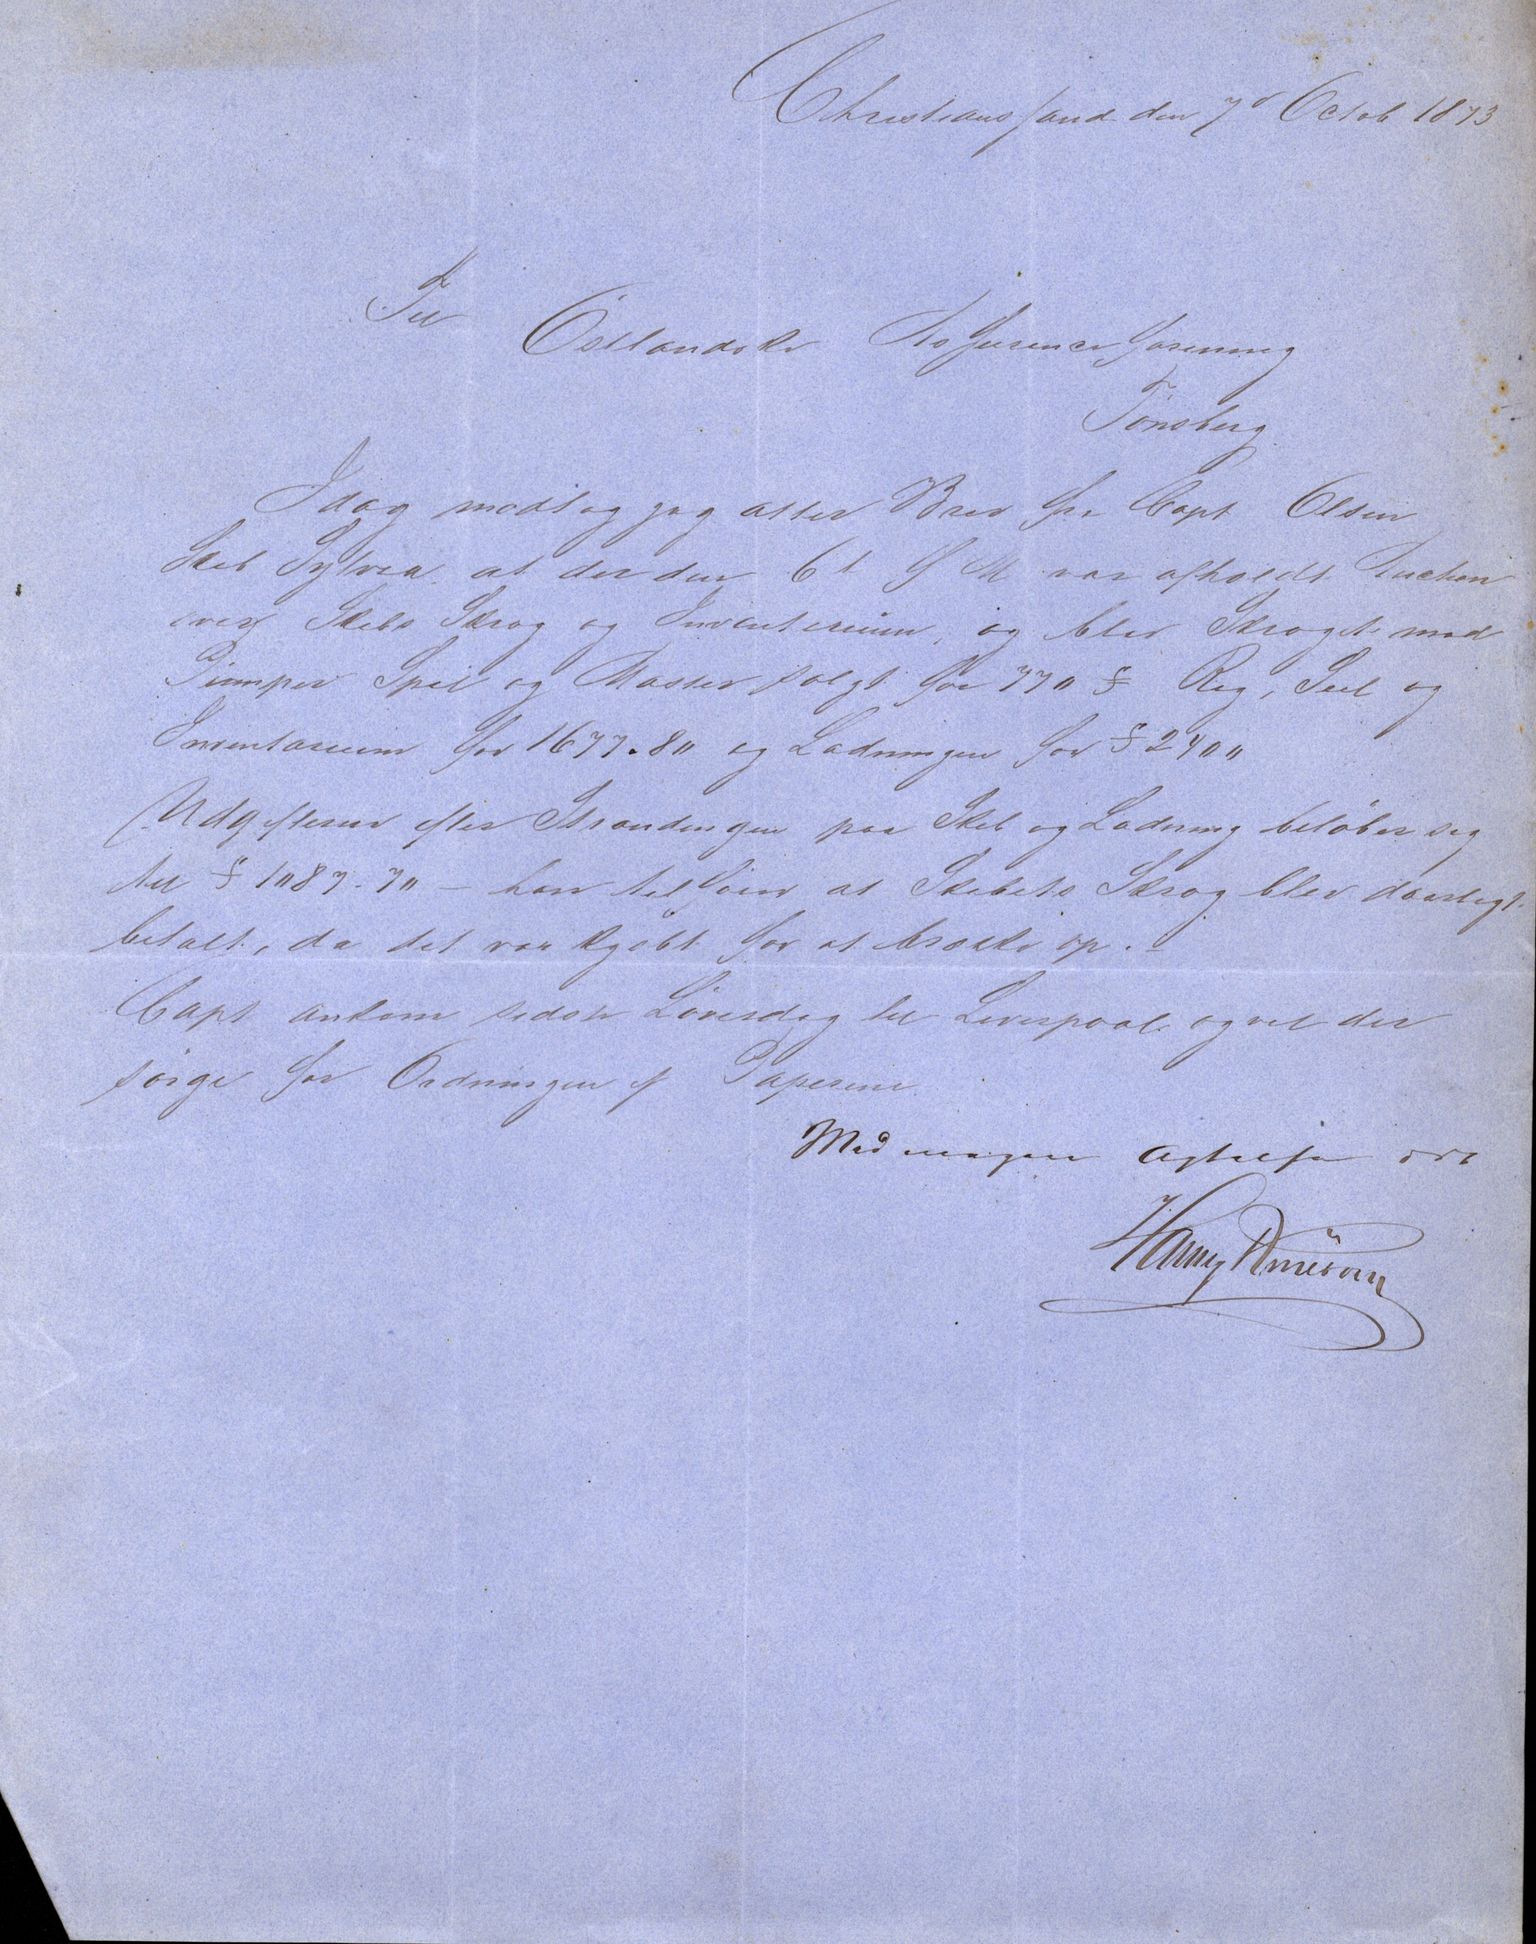 Christianssand den 7d Octob 1873
Til Østlandske Assuranceforening
Tönsberg
Idag modtog jeg atter Brev fra Capt Olsen
Skib Sylvia at der den 6t d M var afholdt Auction
over Skibs Skrog og Inventarium, og blev Skroget med
Pumper Spil og Master solgt for 770 $ Rig, Seil og
Inventarium for 1677.80 og Ladningen for $ 2400
Udgifterne efter Strandingen paa Skib og Ladning belöber sig
til $ 1087.70 — han tilföier at Skibets Skrog blev daarligt
betalt, da det var kjöbt for at brække op. —
Capt ankom sidste Löverdag til Liverpool og vil der
sörge for Ordningen af Papirerne
Med megen Agtelse